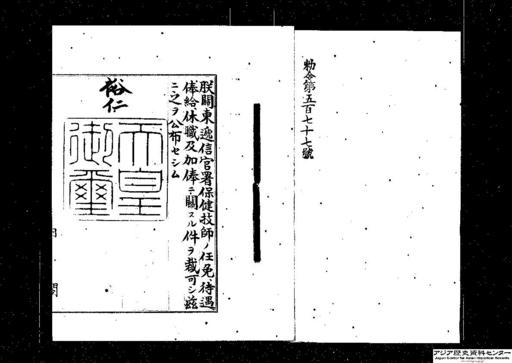 勅令第五百七十七號
朕關東遞信官署保健技師ノ任免、待遇
俸給休職及加俸ニ關スル件ヲ裁可シ茲
ニ之ヲ公布セシム
裕仁
天皇
御璽
アジア歴史資料センター
Japan Center for Asian Historical Records